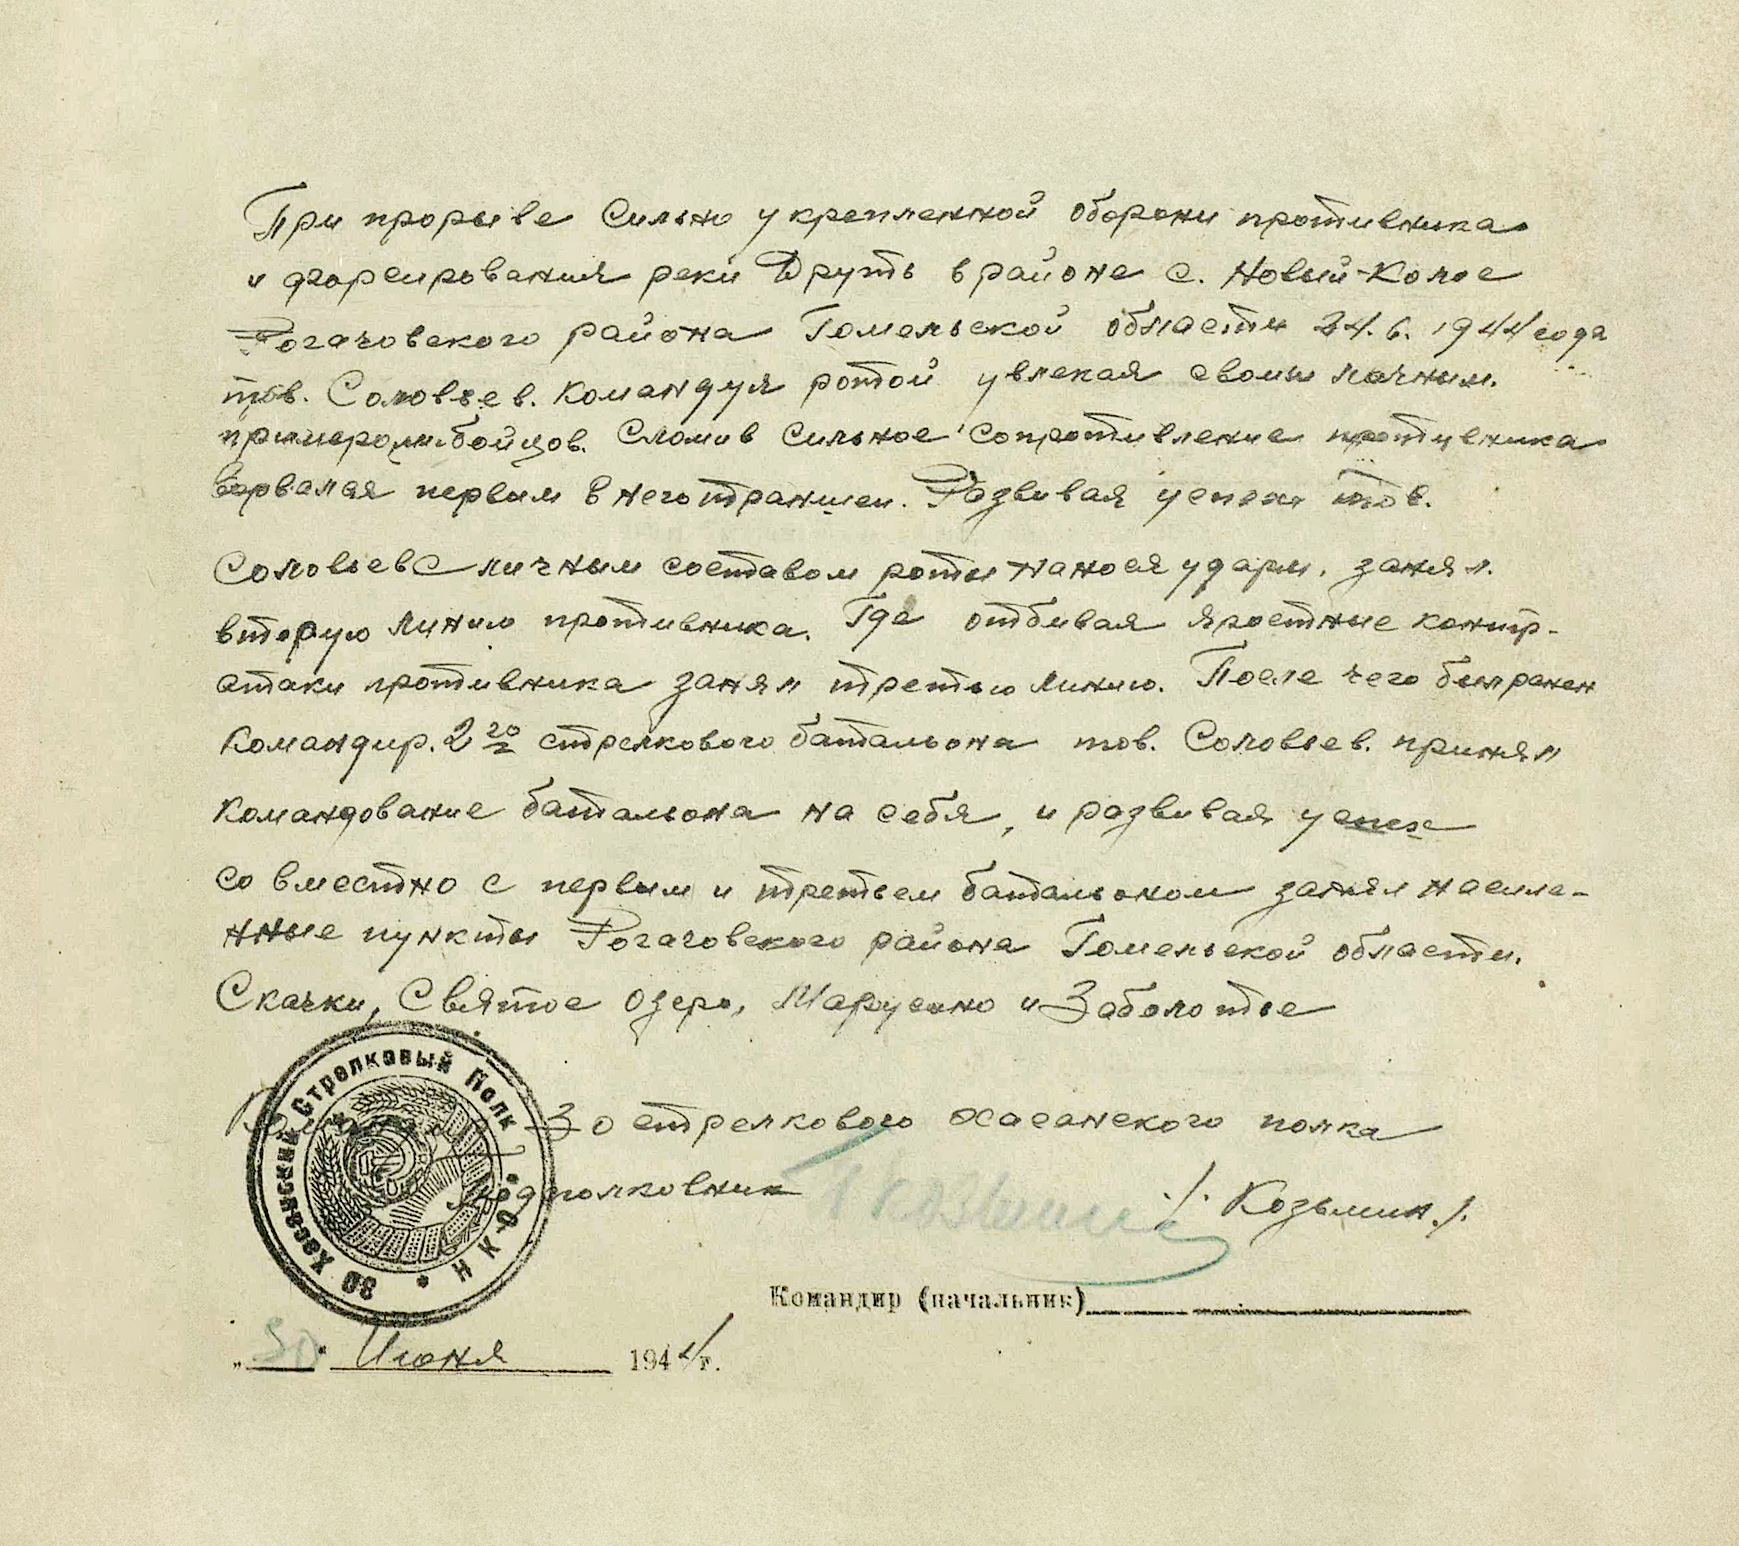 При прорыве Сильно укрепленной оборони противника
и форсирования реки Друть в районе с. Новый-Колос
Рогачовского района Гомельской области 24.6. 1944 года
тов. Соловьев. Командуя ротой увлекая своим личным.
примером бойцов. Сломив сильное сопротивление противника
ворвался первым в него траншеи. Развивая успех тов.
Соловьев С личным составом роты нанося удары, занял.
вторую линию противника. Где отбивая яростные контр-
атаки противника занял третью линию. После чего был ранен
Командир. 2го стрелкового батальона тов. Соловьев. принял
командование батальона на себя, и развивая успех
со вместно с первым и третьем батальоном занял населе-
нные пункты Рогачовского района Гомельской области.
Скачки, Святое Озеро, Марусино и Заболотье
30 Хасанский Стрелковый Полк
* Н К О *
30 стрелкового хасанского полка
подполковник ./. Козьмин./.
Командир (начальник)
„30" Июня 1944 г.